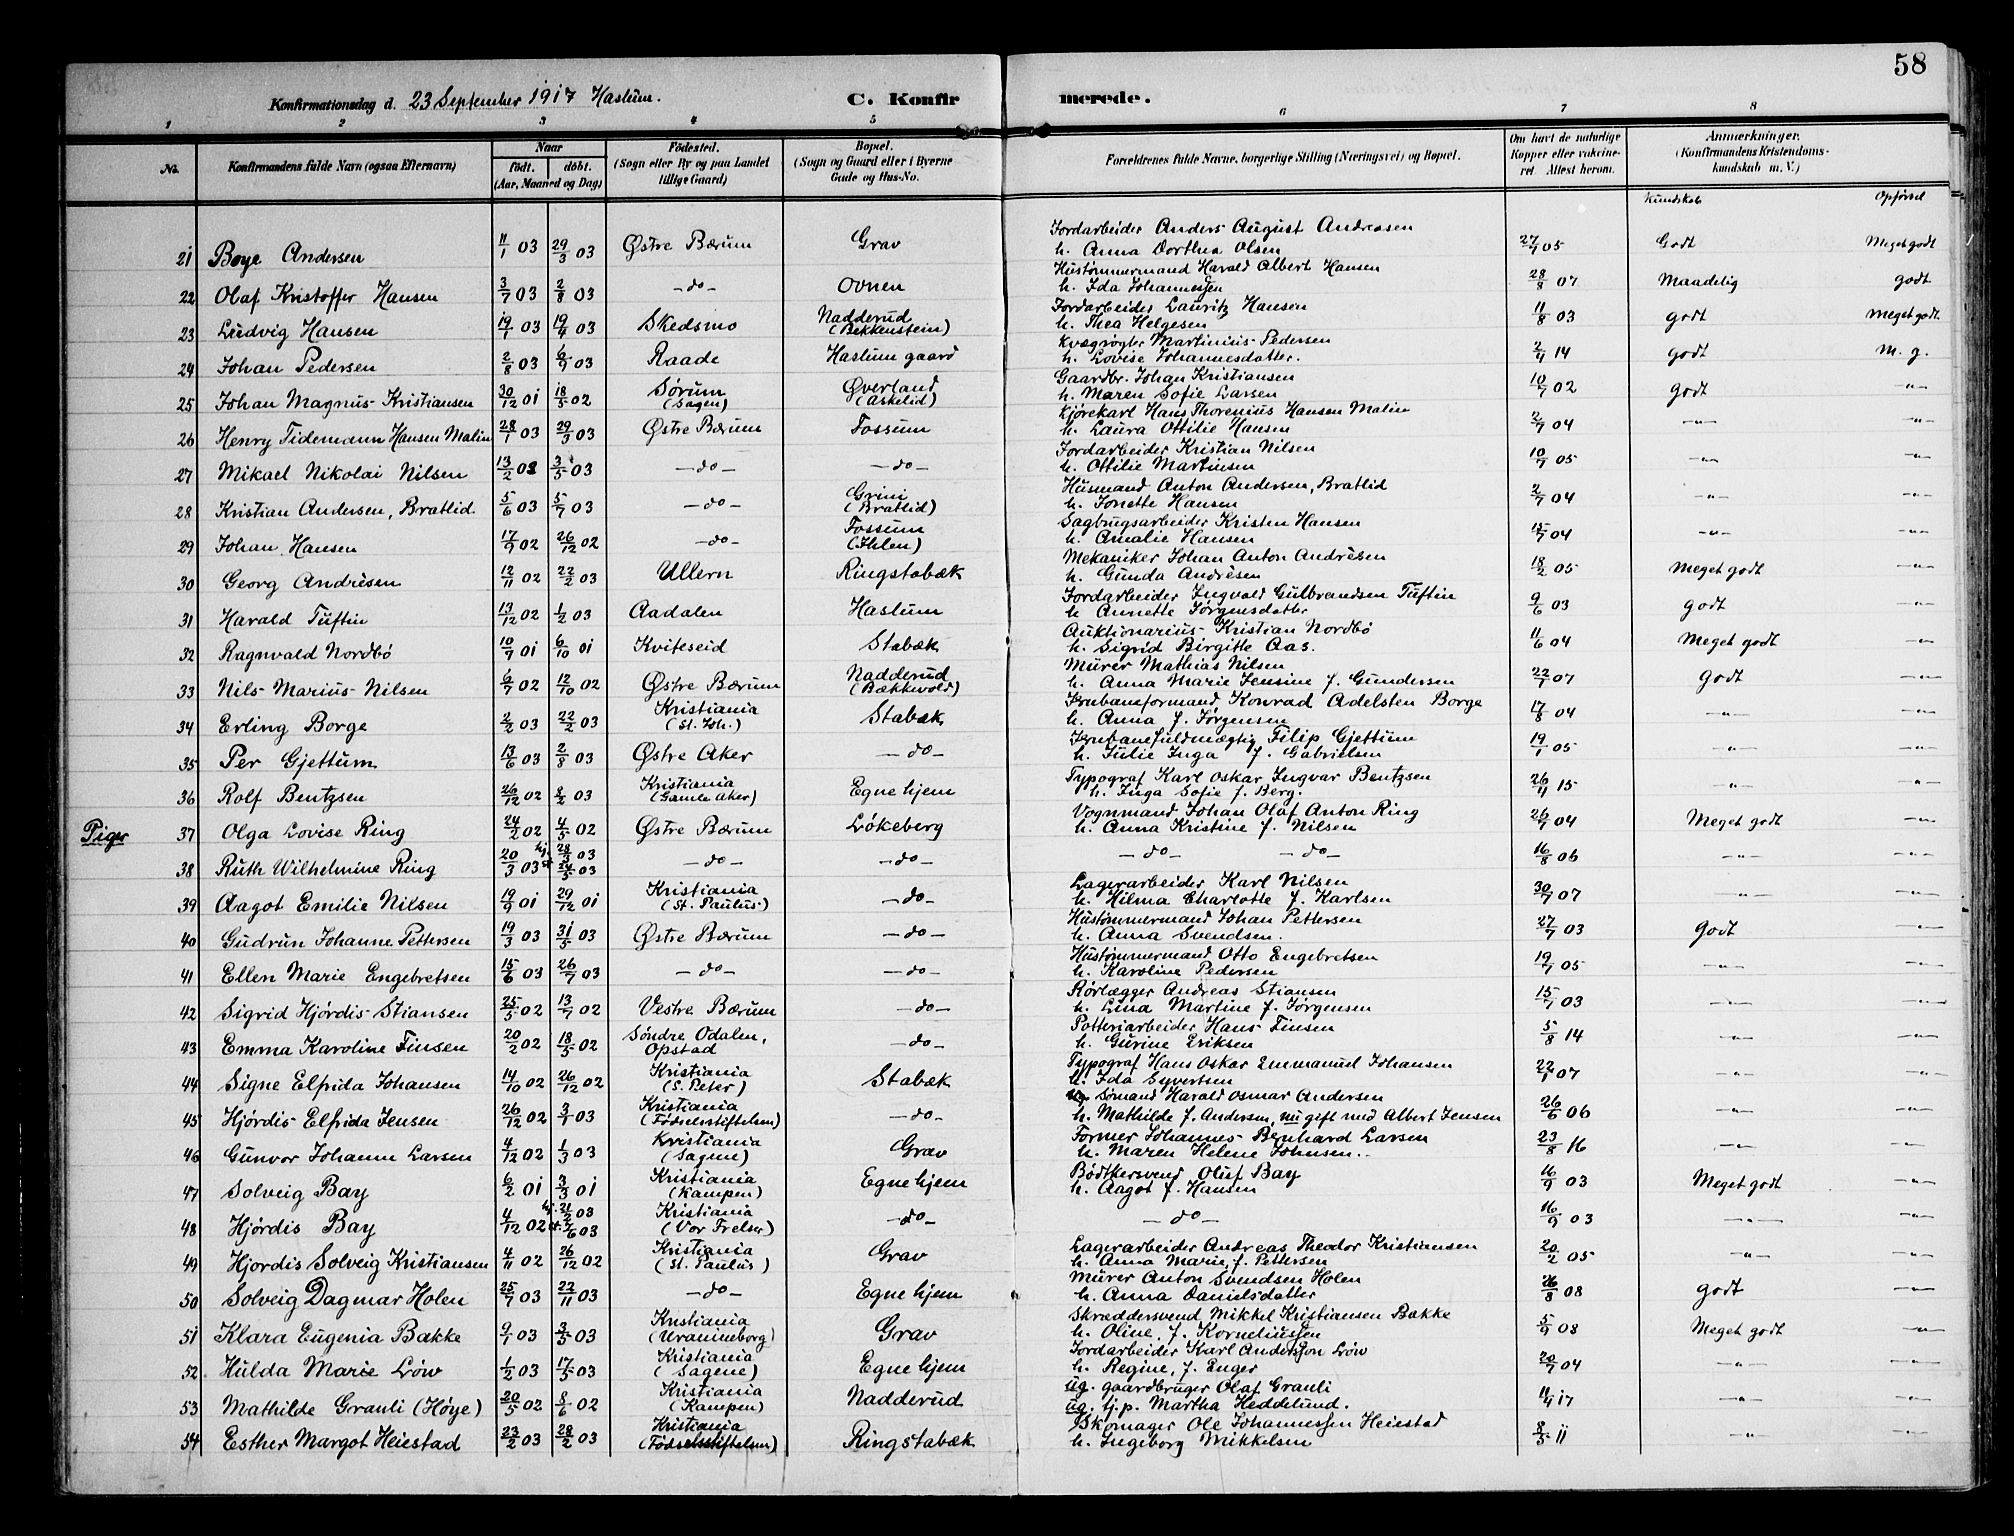 58
Konfirmationsdag d. 23 September 1917 Haslum. C. Konfirmerede.
1 2 3 4 5 6 7 8
No. Konfirmandens fulde Navn (ogsaa Efternavn) Naar født. døbt. (Aar, Maaned og Dag) Fødested. (Sogn eller By og paa Landet tillige Gaard) Bopæl. (Sogn og Gaard eller i Byerne Gade og Hus-No. Forældrenes fulde Navne, borgerlige Stilling (Næringsvei) og Bopæl. Om havt de naturlige Kopper eller vakcineret. Attest herom. Anmærkninger. (Konfirmandens Kristendomskundskab m. V.)
Kundskab Opførsel
21 Boye Andersen 11/1 03 29/3 03 Østre Bærum Grav Jordarbeider Anders August Andreasen h. Anna Dorthea Olsen 27/7 05 Godt Meget godt
22 Olaf Kristoffer Hansen 3/7 03 2/8 03 -do- Ovnen Hustømmermand Harald Albert Hansen h. Ida Johannessen 28/8 07 Maadelig godt
23 Ludvig Hansen 19/1 03 19/4 03 Skedsmo Nadderud (Bekkenstein) Jordarbeider Lauritz Hansen h. Thea Helgesen 11/8 03 godt Meget godt.
24 Johan Pedersen 2/8 03 6/9 03 Raade Haslum gaard Kvægrøgter Martinius Pedersen h. Lovise Johannesdatter. 2/4 14 godt M. g.
25 Johan Magnus Kristiansen 30/12 01 18/5 02 Sørum (Sagen) Øverland (Askelid) Gaardbr. Johan Kristiansen h. Maren Sofie Larsen 10/7 02 godt -"-
26 Henry Tidemann Hansen Malin 28/1 03 29/3 03 Østre Bærum Fossum Kjørekarl Hans Thorenius Hansen Malin h. Laura Ottilie Hansen 2/7 04 -"- -"-
27 Mikael Nikolai Nilsen 13/2 03 3/5 03 -do- -do- Jordarbeider Kristian Nilsen h. Ottilie Martinsen 10/7 05 -"- -"-
28 Kristian Andersen, Bratlid. 5/6 03 5/7 03 -do- Grini (Bratlid) Husmand Anton Andersen, Bratlid h. Jonette Hansen 2/7 04 -"- -"-
29 Johan Hansen 17/9 02 26/12 02 -do- Fossum (Ihlen) Sagbrugsarbeider Kristen Hansen h. Amalie Hansen 15/7 04 -"- -"-
30 Georg Andrèsen 12/11 02 22/2 03 Ullern Ringstabæk Mekaniker Johan Anton Andrèsen h. Gunda Andrèsen 18/2 05 Meget godt -"-
31 Harald Tuftin 13/12 02 1/2 03 Aadalen Haslum Jordarbeider Ingvald Gulbrandsen Tuftin h. Annette Jørgensdatter 9/6 03 godt -"-
32 Ragnvald Nordbö 10/7 01 6/10 01 Kviteseid Stabæk Auktionarius Kristian Nordbö h. Sigrid Birgitte Aas. 11/6 04 Meget godt -"-
33 Nils Marius Nilsen 6/7 02 12/10 02 Østre Bærum Nadderud (Bækkevold) Murer Mathias Nilsen h. Anna Marie Jensine f. Gundersen 22/7 07 Godt -"-
34 Erling Borge 2/2 03 22/2 03 Kristiania (St. Joh.) Stabæk Jernbaneformand, Konrad Adelsten Borge h. Anna f. Jørgensen 17/8 04 -"- -"-
35 Per Gjettum 13/6 03 2/8 03 Østre Aker -do- Jernbanefuldmægtig Filip Gjettum h. Julie Inga f. Gabrielsen 19/1 05 -"- -"-
36 Rolf Bentzsen 26/12 02 8/2 03 Kristiania (Gamle Aker) Egne hjem Typograf Karl Oskar Ingvar Bentzsen h. Inga Sofie f. Berg. 26/11 15 -"- -"-
Piger 37 Olga Lovise Ring 24/2 02 4/5 02 Østre Bærum Lökeberg Vognmand Johan Olaf Anton Ring h. Anna Kristine f. Nilsen 26/7 04 Meget godt -"-
38 Ruth Wilhelmine Ring 20/3 03 hj. 28/3 03 st. 24/5 03 -do- -do- -do- -do- 16/8 06 -"- -"-
39 Aagot Emilie Nilsen 19/9 01 29/12 01 Kristiania (St. Paulus) -do- Lagerarbeider Karl Nilsen h. Hilma Charlotte f. Karlsen 30/7 07 -"- -"-
40 Gudrun Johanne Pettersen 19/3 03 31/5 03 Østre Bærum -do- Hustømmermand Johan Pettersen h. Anna Svendsen. 27/7 03 Godt -"-
41 Ellen Marie Engebretsen 15/6 03 26/7 03 -do- -do- Hustømmermand Otto Engebretsen h. Karoline Pedersen 19/7 05 -"- -"-
42 Sigrid Hjördis Stiansen 25/5 02 13/7 02 Vestre Bærum -do- Rørlægger Andreas Stiansen h. Lina Martine f. Jørgensen 15/7 03 -"- -"-
43 Emma Karoline Finsen 20/2 02 18/5 02 Söndre Odalen, Opstad -do- Potteriarbeider Hans Finsen h. Gurine Eriksen 5/8 14 -"- -"-
44 Signe Elfrida Johansen 14/10 02 26/12 02 Kristiania (S. Peter) Stabæk Typograf Hans Oskar Emmanuel Johansen h. Ida Syvertsen 22/1 07 -"- -"-
45 Hjördis Elfrida Jensen 26/12 02 3/1 03 Kristiania (Fødselsstiftelsen) -do- Sømand Harald Osmar Andersen h. Mathilde f. Andersen, nu gift med Albert Jensen 26/6 06 -"- -"-
46 Gunvor Johanne Larsen 4/12 02 1/3 03 Kristiania (Sagene) Grav Former Johannes Bernhard Larsen h. Maren Helene Johnsen. 23/8 16 -"- -"-
47 Solveig Bay 6/2 01 3/3 01 Kristiania (Kampen) Egne hjem Bødkersvend Oluf Bay h. Aagot f. Hansen 16/9 03 Meget godt -"-
48 Hjördis Bay 4/12 02 hj. 21/2 03 st. 2/6 03 Kristiania (Vor Frelser) -do- -do- 16/9 03 -"- -"-
49 Hjordis Solveig Kristiansen 4/11 02 26/12 02 Kristiania (St. Paulus) Grav Lagerarbeider Andreas Theodor Kristiansen h. Anna Marie, f. Pettersen 20/2 05 -"- -"-
50 Solveig Dagmar Holen 25/7 03 22/11 03 -do- Egne hjem Murer Anton Svendsen Holen h. Anna Danielsdatter 26/8 08 godt -"-
51 Klara Eugenia Bakke 9/1 03 3/5 03 Kristiania (Uranineborg) Grav Skræddersvend Mikkel Kristiansen Bakke h. Oline, f. Korneliussen 5/9 08 Meget godt -"-
52 Hulda Marie Löw 1/2 03 17/5 03 Kristiania (Sagene) Egne hjem Jordarbeider Karl Andersson Löw h. Regine, f. Enger 20/7 04 -"- -"-
53 Mathilde Grauli (Höye) 20/5 02 8/6 02 Kristiania (Kampen) Nadderud ug. gaardbruger Olaf Grauli ug. tj.p. Martha Heddelund. 11/4 17 -"- -"-
54 Esther Margot Heiestad 23/2 03 28/2 03 Kristiania (Fødselsstiftelsen) Ringstabæk Skomager Ole Johannessen Heiestad h. Ingeborg Mikkelsen 8/5 11 -"- -"-